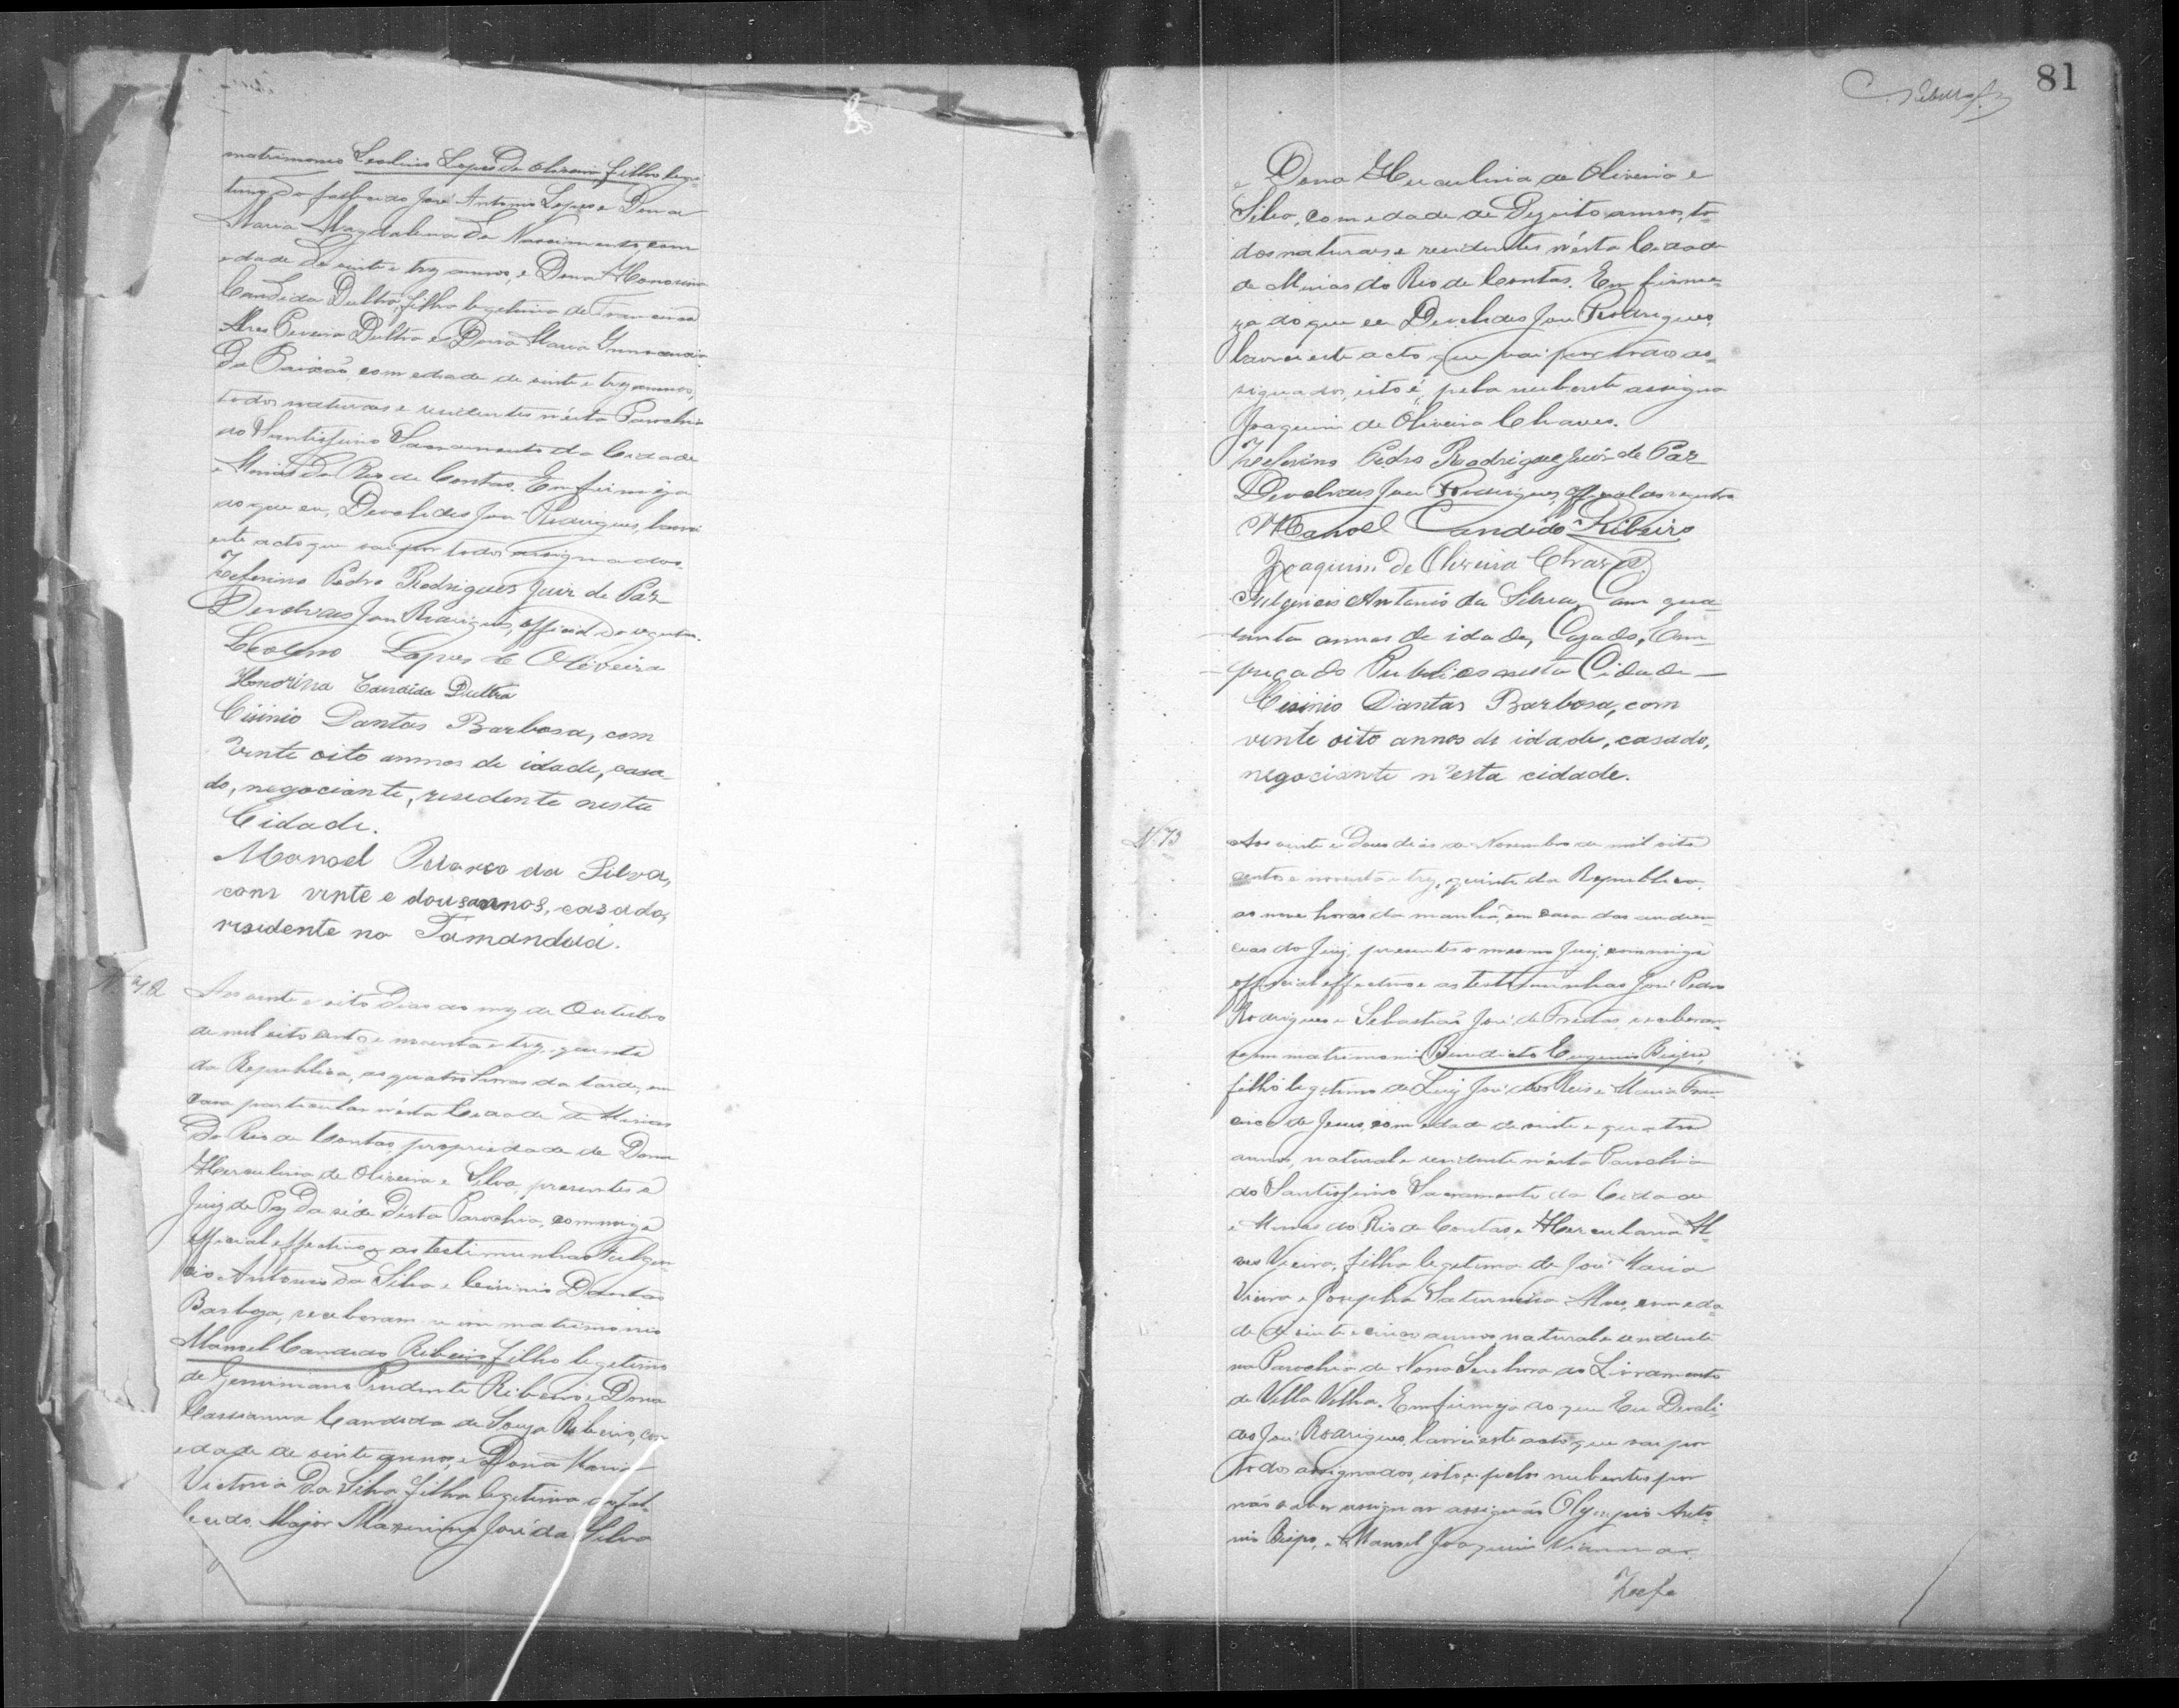 matrimonio Leolino Lopes de Oliveira filho legi-
timo do fallecido José Antonio Lopes e Dona
Maria Magdalena do Nascimento, com
edade de vinte e trez annos, e Dona Honorina
Candida Dultra, filha legitima de Francisco
Alves Pereira Dultra e Dona Maria Innocencia
da Paixão, com edade de vinte e trez annos,
todos naturaes e residentes n'esta Parochia
do Santissimo Sacramento da Cidade
e Minas do Rio de Contas. Em firmeza
do que eu, Deoclides José Rodrigues, lavrei
este acto que vai por todos assignados.
Zeferino Pedro Rodrigues Juiz de Paz
Deoclides José Rodrigues, official do registro.
Leolino Lopes de Oliveira
Honorina Candida Dultra
Cisinio Dantas Barbosa, com
vinte oito annos de idade, casa
do, negociante, residente nesta
Cidade.
Manoel da Silva,
com vinte e dous annos, casado,
residente no Tamanduá.
N. 72
Aos vinte e oito dias do mez de Outubro
de mil oito centos e noventa e trez, quinto
da Republica, as quatro horas da tarde, em
casa particular n'esta Cidade de Minas
do Rio de Contas, propriedade de Dona
Herculina de Oliveira e Silva, presentes o
Juiz de Paz da séde d'esta Parochia, commigo
official effectivo e as testimunhas Fulgen-
cio Antonio da Silva e Cisinio Dantas
Barboza, receberam se em matrimonio
Manoel Candido Ribeiro filho legitimo
de Geminiano Prudente Ribeiro e Dona
Cassianna Candida de Souza Ribeiro, com
edade de vinte annos, e Dona Maria
Victoria da Silva filha legitima do fal-
lecido Major Maximino José da Silva
81
e Dona Herculina de Oliveira e
Silva, com edade de Dezoito annos, to-
dos naturaes e residentes n'esta Cidade
de Minas do Rio de Contas. Em firme-
za do que eu Deoclides José Rodrigues,
lavrei este acto que vai por todos as-
signados, isto é, pela nubente assigna
Joaquim de Oliveira Chaves.
Zeferino Pedro Rodrigues Juiz de Paz
Deoclides José Rodrigues, official do registro
Manoel Candido Ribeiro
Joaquim de Oliveira Chaves.
Fulgencio Antonio da Silva, com qua-
renta annos de idade, Casado, Em-
pregado Publico nesta Cidade
Cisinio Dantas Barbosa, com
vinte oito annos de idade, casado,
negociante n'esta cidade.
N. 73
Aos vinte e dous dias de Novembro de mil oito
centos e noventa e trez, quinto da Republica,
as nove horas da manhã, em casa das audien-
cias do Juiz, presentes o mesmo Juiz, commigo
official effectivo e as testimunhas José Pedro
Rodrigues e Sebastião José de Freitas, receberam-
se em matrimonio Benedicto Eugenio Bispo,
filho legitimo de Luiz José dos Reis e Maria Fran-
cisca de Jesus, com edade de vinte e quatro
annos, natural e residente n'esta Parochia
do Santissimo Sacramento da Cidade
e Minas do Rio de Contas, e Herculana Al-
ves Vieira, filha legitima de José Maria
Vieira e Josepha Saturnina Alves, com eda-
de de vinte e cinco annos, natural e residente
na Parochia de Nossa Senhora do Livramento
de Villa Velha. Em firmeza do que Eu Deocli-
des José Rodrigues, lavrei este acto que vai por
todos assignados, isto é, pelos nubentes por
não saber assignar assignão Olympio Anto-
nio Bispo, e Manoel Joaquim Vianna.
Zefe